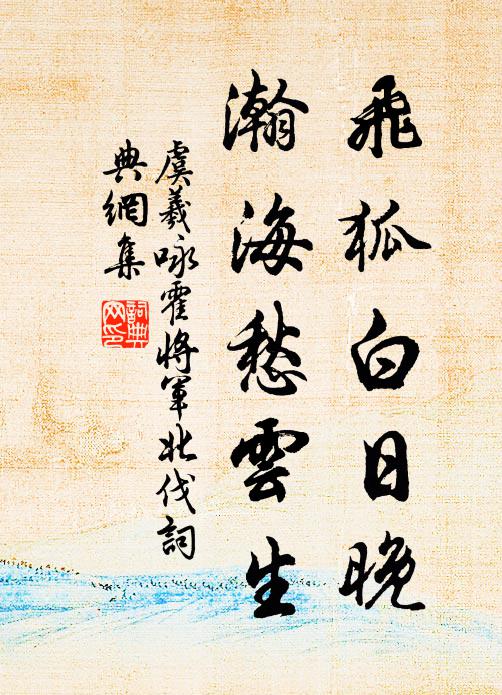 飛狐白日晚
瀚海愁雲生
虞羲咏霍將軍北伐詞
典網集
詞典
网印